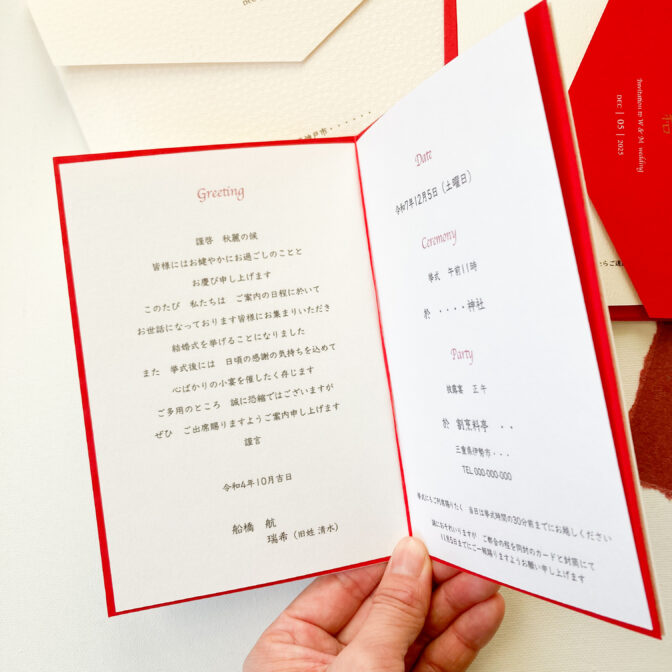 Greeting
謹啓　秋麗の候
皆様にはお健やかにお過ごしのことと
お慶び申し上げます
このたび　私たちは　ご案内の日程に於いて
お世話になっております皆様にお集まりいただき
結婚式を挙げることになりました
また　挙式後には　日頃の感謝の気持ちを込めて
心ばかりの小宴を催したく存じます
ご多用のところ　誠に恐縮ではございますが
ぜひ　ご出席賜りますようご案内申し上げます
謹言
令和4年10月吉日
船橋　航
瑞希（旧姓 清水）
Date
令和7年12月5日（土曜日）
Ceremony
挙式　午前11時
於　・・・・神社
Party
披露宴　正午
於　割烹料亭　・・
三重県伊勢市・・・
TEL 000-000-000
挙式にもご列席賜りたく　当日は挙式時間の30分前までにお越しください
誠におそれいりますが　ご都合の程を同封のカードと封筒にて
11月5日までにご一報賜りますようお願い申し上げます
Invitation to W & M wedding
DEC | 05 | 2025
DEC
神戸市・・・・・・